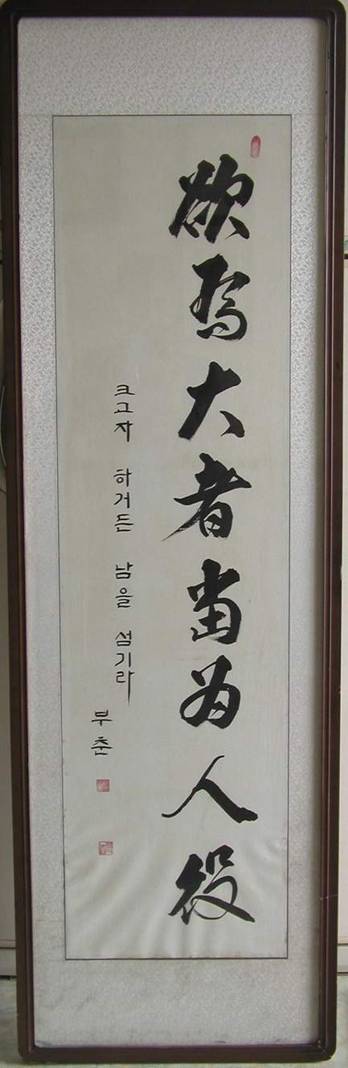 欲爲大者當为人役
크고자 하거든 남을 섬기라
부춘